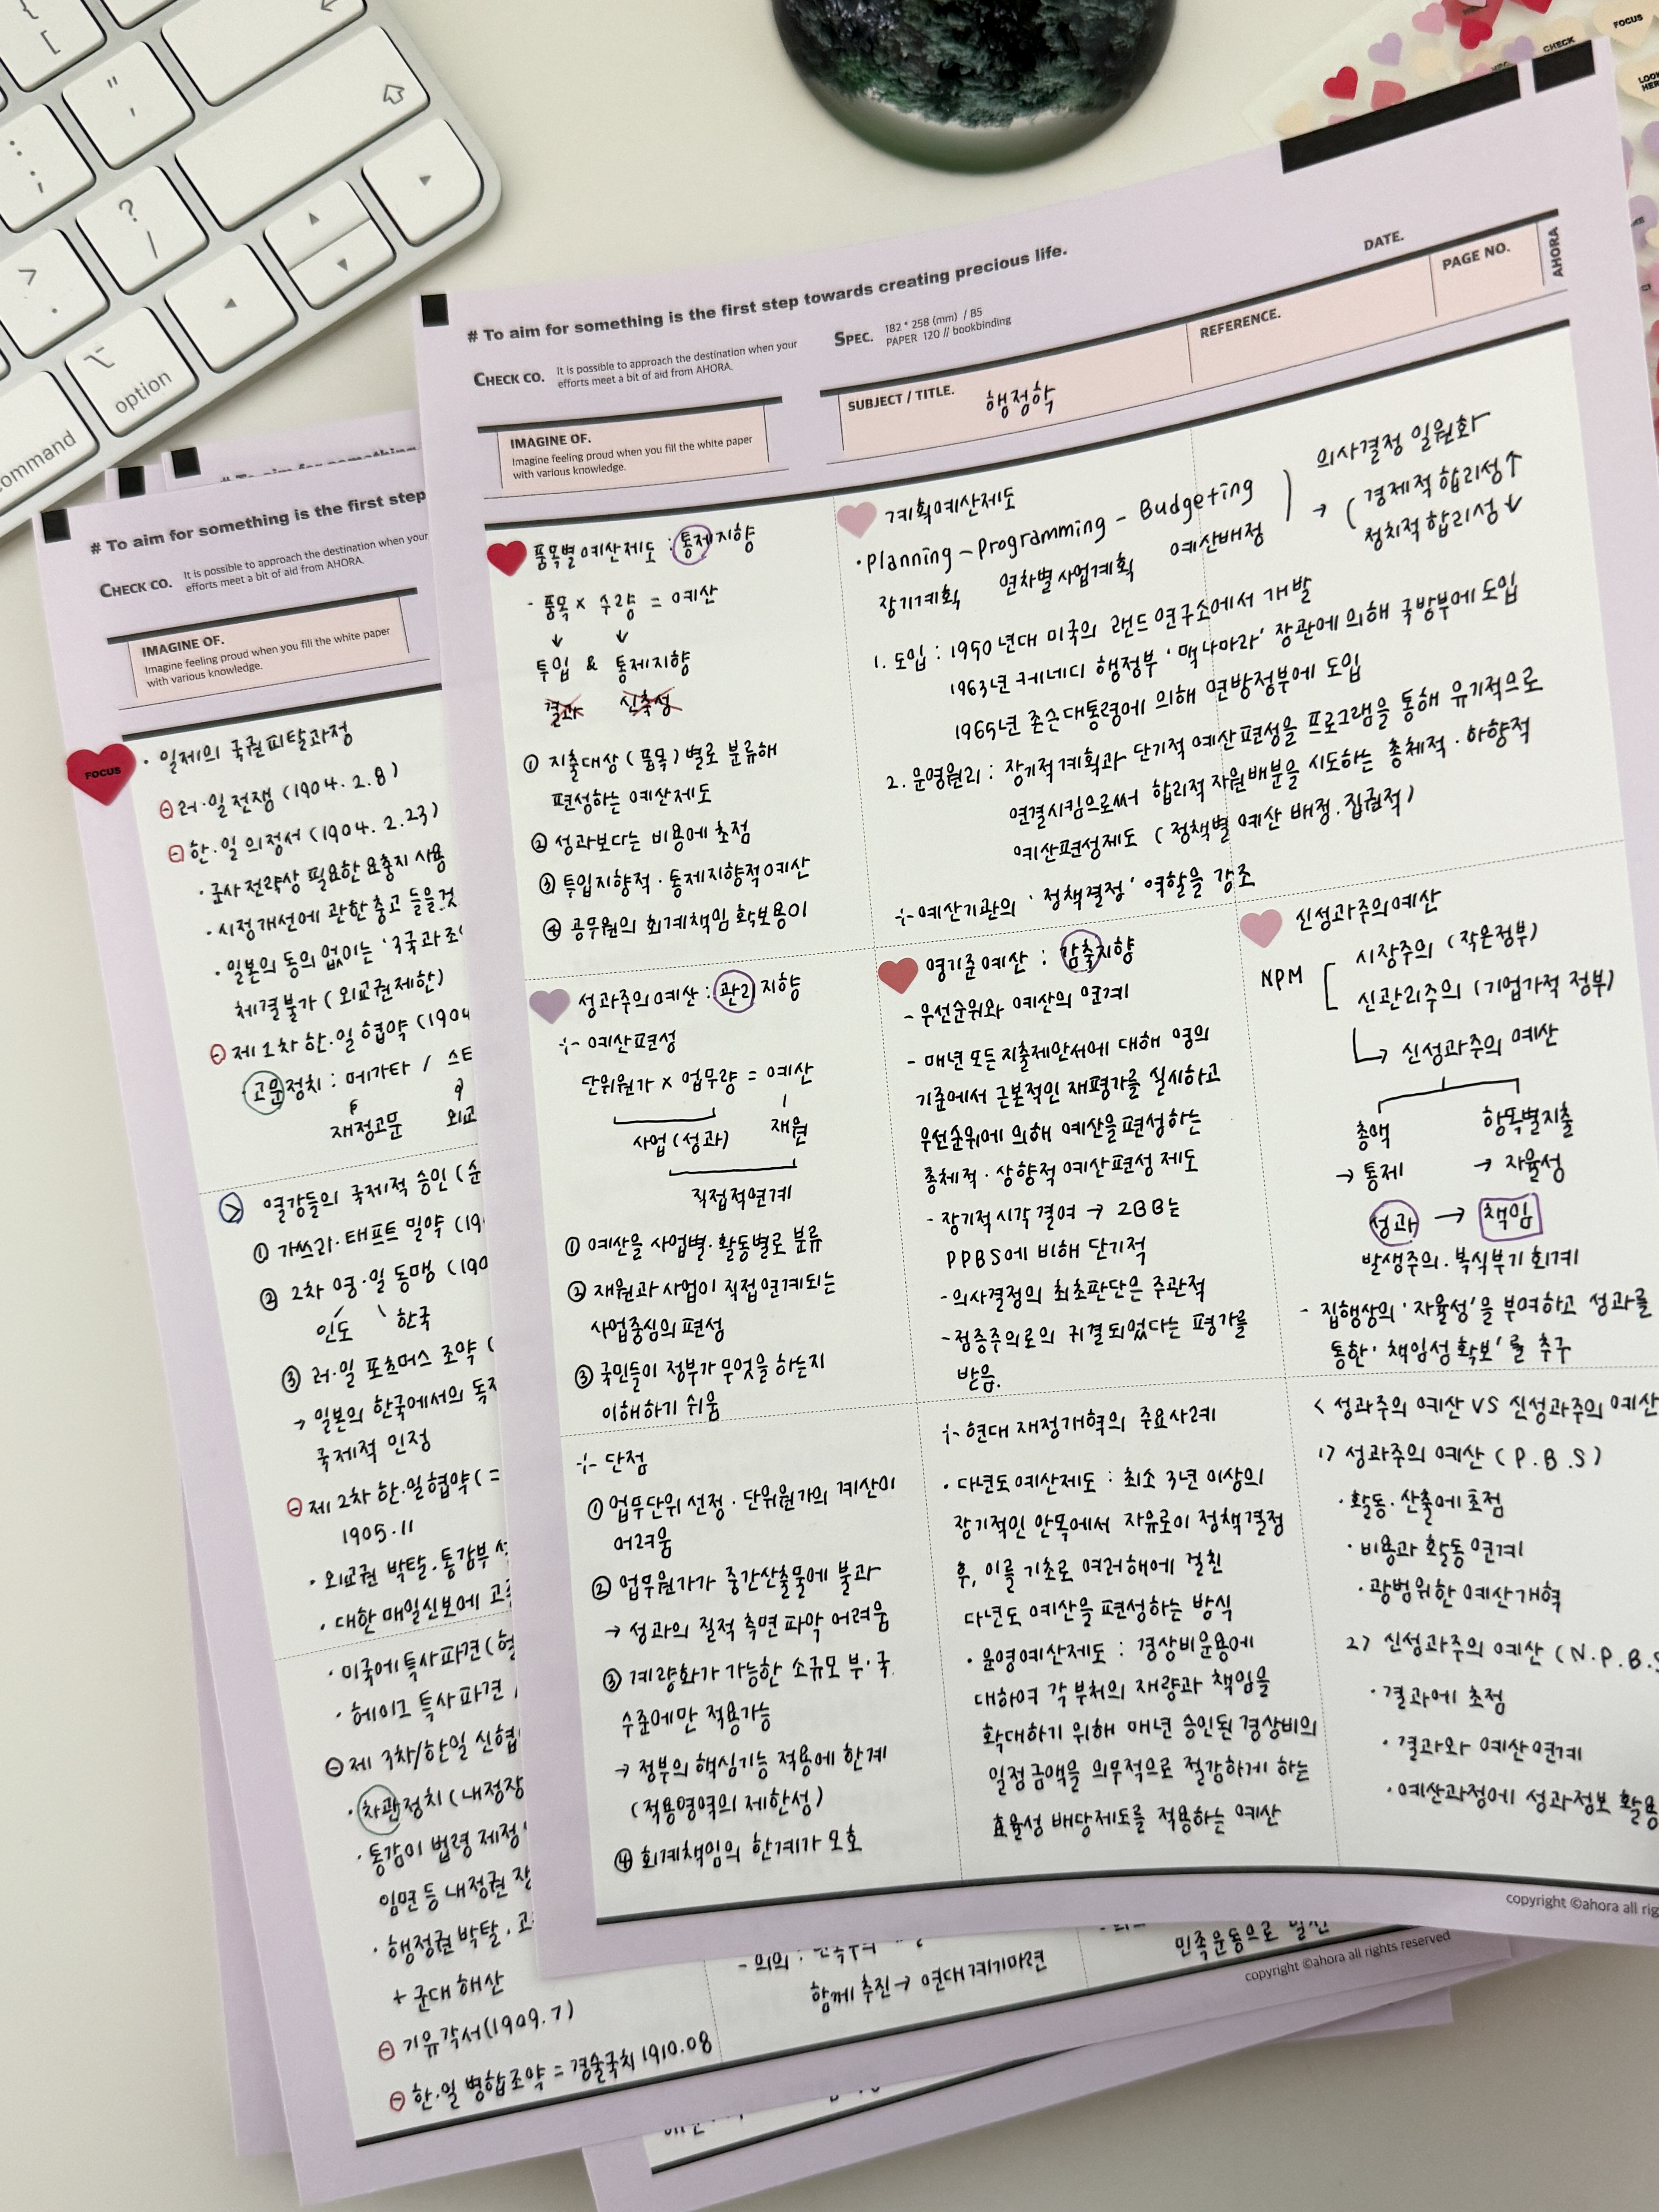 # To aim for something is the first step towards creating precious life.
CHECK CO.
It is possible to approach the destination when your
efforts meet a bit of aid from AHORA.
SPEC.
182 * 258 (mm) / B5
PAPER 120 // bookbinding
DATE.
IMAGINE OF.
Imagine feeling proud when you fill the white paper
with various knowledge.
SUBJECT / TITLE.
행정학
REFERENCE.
PAGE NO.
AHORA
품목별예산제도 : 통제지향
- 품목 × 수량 = 예산
↓ ↓
투입 & 통제지향
결과 신축성
① 지출대상(품목)별로 분류해
편성하는 예산제도
② 성과보다는 비용에 초점
③ 투입지향적·통제지향적예산
④ 공무원의 회계책임 확보용이
계획예산제도
· Planning - Programming - Budgeting
장기계획 연차별사업계획 예산배정
→ 의사결정 일원화
( 경제적 합리성↑
정치적 합리성↓
1. 도입 : 1950년대 미국의 랜드 연구소에서 개발
1963년 케네디 행정부 '맥나마라' 장관에 의해 국방부에 도입
1965년 존슨대통령에 의해 연방정부에 도입
2. 운영원리 : 장기적계획과 단기적 예산편성을 프로그램을 통해 유기적으로
연결시킴으로써 합리적 자원배분을 시도하는 총체적·하향적
예산편성제도 (정책별 예산 배정·집권적)
÷ 예산기관의 '정책결정' 역할을 강조
성과주의예산 : 관리 지향
÷ 예산편성
단위원가 × 업무량 = 예산
사업(성과) 재원
직접적연계
① 예산을 사업별·활동별로 분류
② 재원과 사업이 직접연계되는
사업중심의 편성
③ 국민들이 정부가 무엇을 하는지
이해하기 쉬움
영기준예산 : 감축지향
- 우선순위와 예산의 연계
- 매년 모든지출제안서에 대해 영의
기준에서 근본적인 재평가를 실시하고
우선순위에 의해 예산을 편성하는
총체적·상향적 예산편성 제도
- 장기적시각 결여 → ZBB는
PPBS에 비해 단기적
- 의사결정의 최초판단은 주관적
- 점증주의로의 귀결되었다는 평가를
받음.
신성과주의예산
NPM
시장주의 (작은정부)
신관리주의 (기업가적 정부)
↳ 신성과주의 예산
총액 항목별지출
→ 통제 → 자율성
성과 → 책임
발생주의·복식부기 회계
- 집행상의 '자율성'을 부여하고 성과를
통한 '책임성확보'를 추구
÷ 단점
① 업무단위 선정·단위원가의 계산이
어려움
② 업무원가가 중간산출물에 불과
→ 성과의 질적 측면파악 어려움
③ 계량화가 가능한 소규모 부·국
수준에만 적용가능
→ 정부의 핵심기능 적용에 한계
(적용영역의 제한성)
④ 회계책임의 한계가 모호
÷ 현대 재정개혁의 주요사례
· 다년도예산제도 : 최소 3년 이상의
장기적인 안목에서 자유로이 정책결정
후, 이를 기초로 여러해에 걸친
다년도 예산을 편성하는 방식
· 운영예산제도 : 경상비운용에
대하여 각 부처의 재량과 책임을
확대하기 위해 매년 승인된 경상비의
일정 금액을 의무적으로 절감하게 하는
효율성 배당제도를 적용하는 예산
< 성과주의 예산 VS 신성과주의 예산
1) 성과주의 예산 (P.B.S)
· 활동·산출에초점
· 비용과 활동 연계
· 광범위한 예산개혁
2) 신성과주의 예산 (N.P.B.S
· 결과에 초점
· 결과와 예산연계
· 예산과정에 성과정보 활용
copyright ©ahora all rig
# To aim for something is the first step
CHECK CO.
It is possible to approach the destination when your
efforts meet a bit of aid from AHORA.
IMAGINE OF.
Imagine feeling proud when you fill the white paper
with various knowledge.
FOCUS
· 일제의 국권피탈과정
㊀ 러·일 전쟁 (1904. 2. 8)
㊀ 한·일 의정서 (1904. 2.23)
· 군사 전략상 필요한 요충지 사용
· 시정개선에 관한 충고 들을것
· 일본의 동의 없이는 '3국과 조
체결불가 (외교권제한)
㊀ 제1차 한·일 협약 (1904
· 고문정치 : 메가타 / 스티
재정고문 외교
열강들의 국제적 승인 (
① 가쓰라·태프트 밀약 (19
② 2차 영·일 동맹 (190
인도 한국
③ 러·일 포츠머스 조약 (
→ 일본의 한국에서의 독
국제적 인정
㊀ 제2차 한·일협약 ( =
1905.11
· 외교권 박탈·통감부
· 대한매일신보에 고
· 미국에 특사파견 (
· 헤이그 특사파견
㊀ 제 3차/한일 신협
· 차관정치 (내정장
· 통감이 법령 제정
임면 등 내정권 장
· 행정권 박탈·고
+ 군대해산
㊀ 기유각서(1909.7)
㊀ 한·일 병합조약 = 경술국치 1910.08
- 의의 :
함께 추진 → 연대 계기마련
민족운동으로 발전
copyright ©ahora all rights reserved
option
command
FOCUS
CHECK
LOOK
HERE